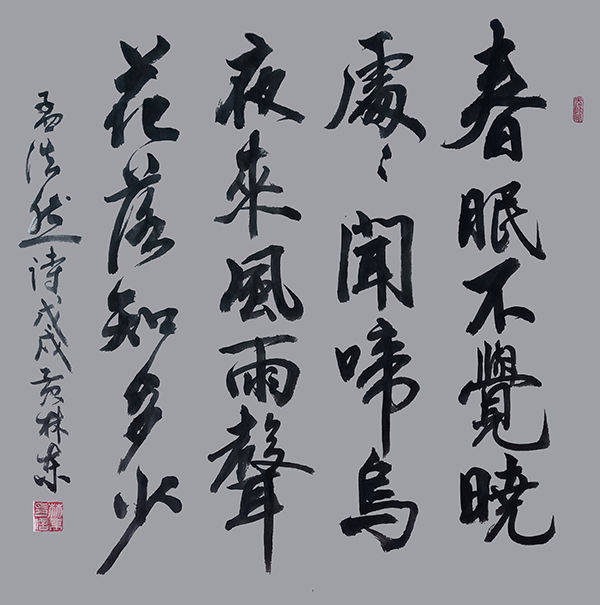 春眠不覺曉
處々聞啼鳥
夜來風雨聲
花落知多少
孟浩然诗戊戌黄林东